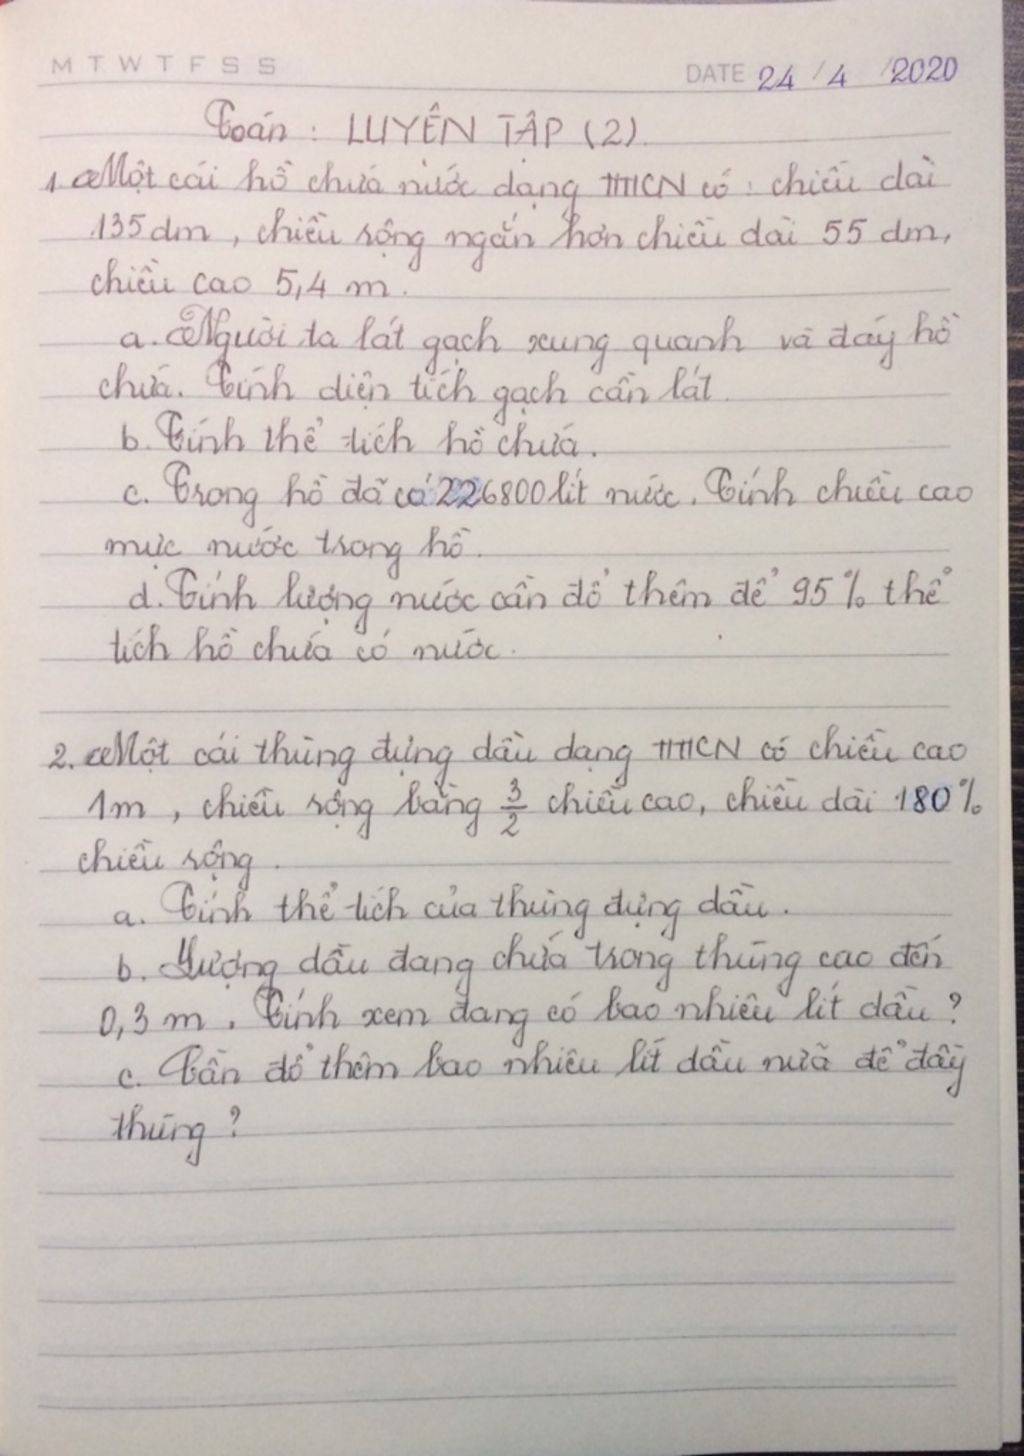 M T W T F S S
DATE 24 / 4 / 2020
Toán : LUYỆN TẬP (2)
1. Một cái hồ chứa nước dạng HHCN có : chiều dài
135 dm , chiều rộng ngắn hơn chiều dài 55 dm,
chiều cao 5,4 m.
a. Người ta lát gạch xung quanh và đáy hồ
chứa. Tính diện tích gạch cần lát.
b. Tính thể tích hồ chứa.
c. Trong hồ đã có 226800 lít nước. Tính chiều cao
mực nước trong hồ.
d. Tính lượng nước cần đổ thêm để 95% thể
tích hồ chứa có nước.
2. Một cái thùng đựng dầu dạng HHCN có chiều cao
1m , chiều rộng bằng 3/2 chiều cao, chiều dài 180%
chiều rộng .
a. Tính thể tích của thùng đựng dầu .
b. Lượng dầu đang chứa trong thùng cao đến
0,3 m . Tính xem đang có bao nhiêu lít dầu ?
c. Cần đổ thêm bao nhiêu lít dầu nữa để đầy
thùng ?